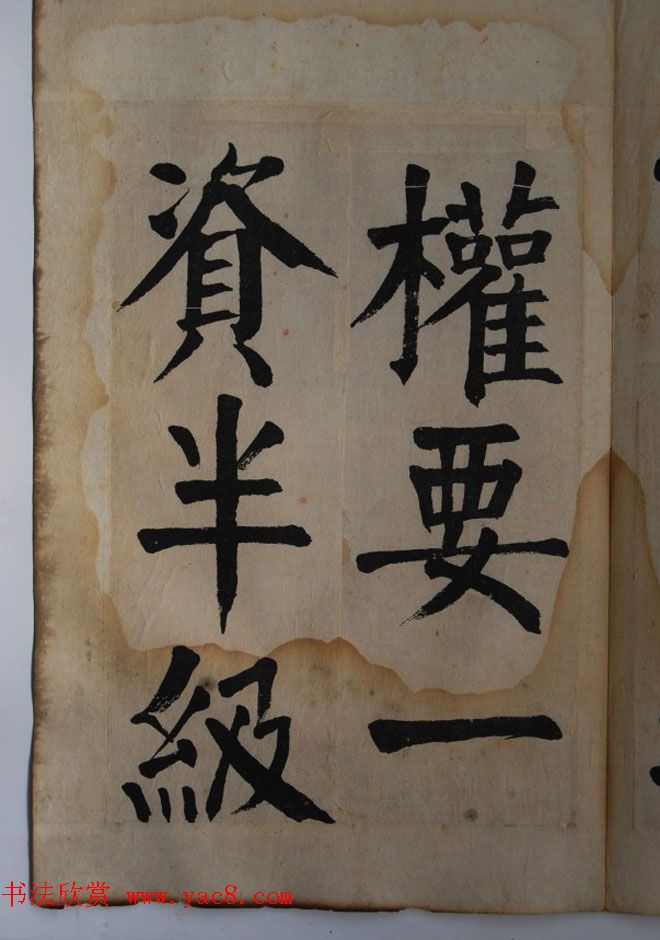 權要一
資半級
书法欣赏 www.yac8.com